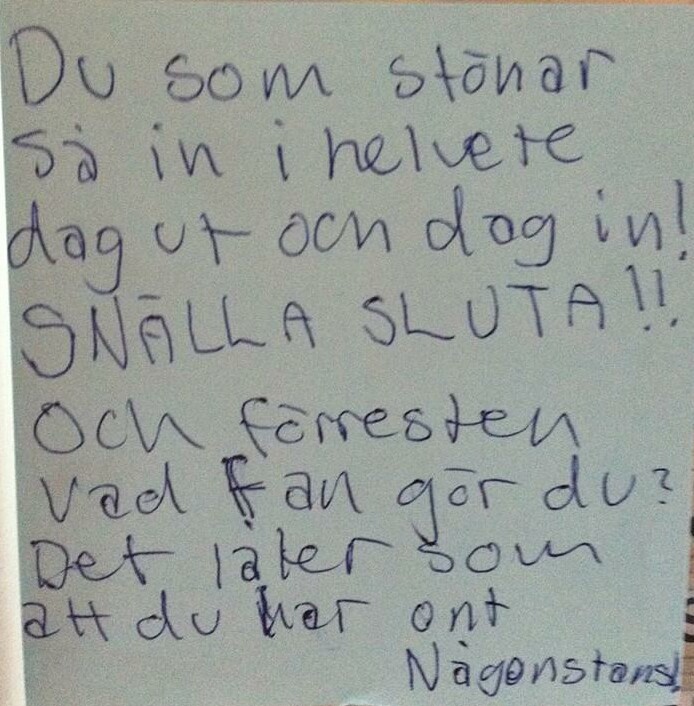 Du som stönar
så in i helvete
dag ut och dag in!
SNÄLLA SLUTA!!
Och förresten
vad fan gör du?
Det låter som
att du har ont
Någonstans!